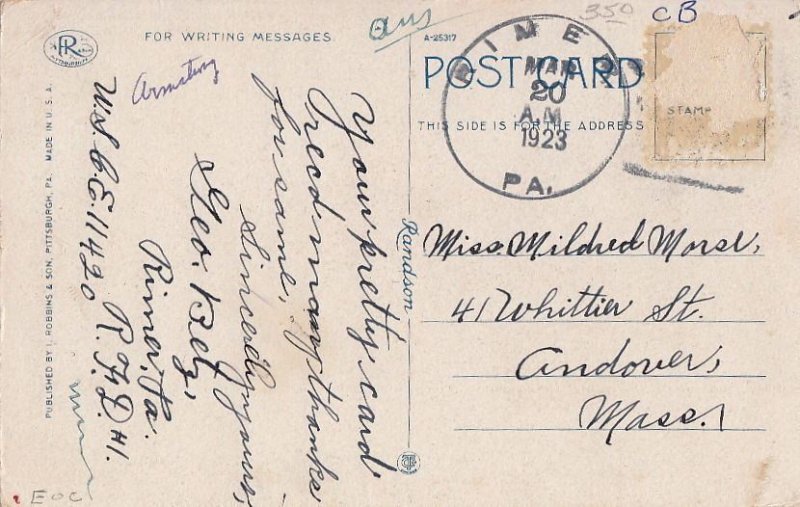 FOR WRITING MESSAGES
R
PITTSBURGH
ans
A-25317
350
CB
POST CARD
THIS SIDE IS FOR THE ADDRESS
STAMP
RIMER
MAR
20
A.M.
1923
PA.
Armstrong
Your pretty card
recd many thanks
for same,
Sincerely yours,
Geo. Betz,
Rimer, Pa.
R.F.D #1.
U.S.C.E. 11420
Miss. Mildred Morse,
41 Whittier St.
Andover,
Mass.
Randson
PUBLISHED BY I. ROBBINS & SON, PITTSBURGH, PA. MADE IN U.S.A.
EOC